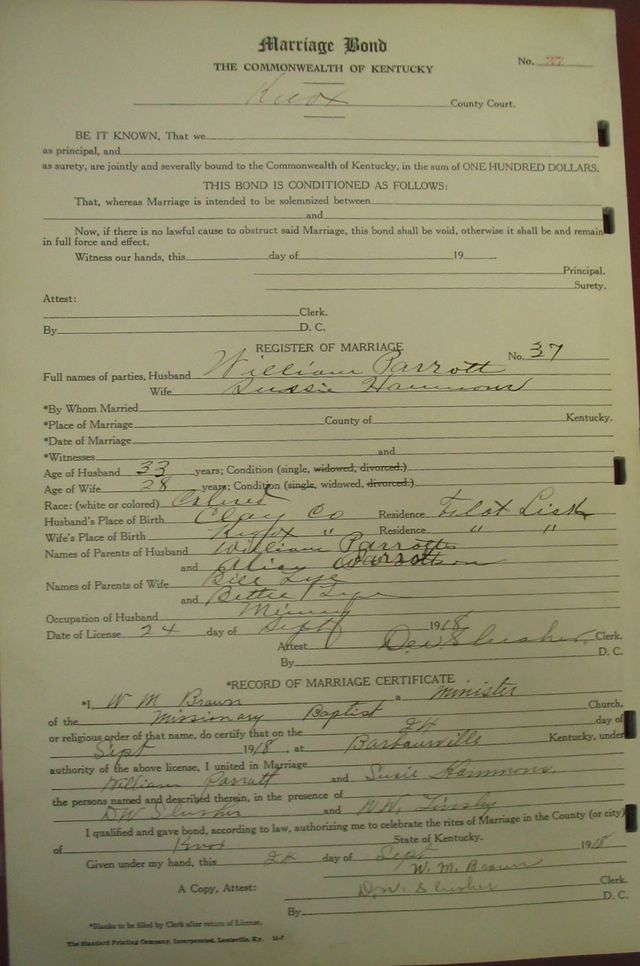 Marriage Bond
THE COMMONWEALTH OF KENTUCKY
No. 37
Knox County Court.
BE IT KNOWN, That we
as principal, and
as surety, are jointly and severally bound to the Commonwealth of Kentucky, in the sum of ONE HUNDRED DOLLARS.
THIS BOND IS CONDITIONED AS FOLLOWS:
That, whereas Marriage is intended to be solemnized between
and
Now, if there is no lawful cause to obstruct said Marriage, this bond shall be void, otherwise it shall be and remain
in full force and effect.
Witness our hands, this day of 19
Principal.
Surety.
Attest:
Clerk.
By D. C.
REGISTER OF MARRIAGE
No. 37
Full names of parties, Husband William Parrott
Wife Sussie Hammons
*By Whom Married
*Place of Marriage County of Kentucky.
*Date of Marriage
*Witnesses and
Age of Husband 33 years; Condition (single, widowed, divorced.)
Age of Wife 28 years; Condition (single, widowed, divorced.)
Race: (white or colored) Colored
Husband's Place of Birth Clay Co Residence
Wife's Place of Birth Knox " Residence " "
Names of Parents of Husband William Parrott
and Parrott
Names of Parents of Wife Bill Lye
and Bettie Lye
Occupation of Husband Mining
Date of License 24 day of Sept 1918
Attest D.W. Slusher Clerk.
By D. C.
*RECORD OF MARRIAGE CERTIFICATE
*I, W M Brown a minister
of the Missionary Baptist Church,
or religious order of that name, do certify that on the 24 day of
Sept 1918, at Barbourville Kentucky, under
authority of the above license, I united in Marriage
William Parratt and Susie Hammons,
the persons named and described therein, in the presence of
DW Slusher and W.W. Tinsley
I qualified and gave bond, according to law, authorizing me to celebrate the rites of Marriage in the County (or city)
of Knox State of Kentucky.
Given under my hand, this 24 day of Sept 1918
W. M. Brown
A Copy, Attest: D.W. Slusher Clerk.
By D. C.
*Blanks to be filled by Clerk after return of License.
The Standard Printing Company, Incorporated, Louisville, Ky.